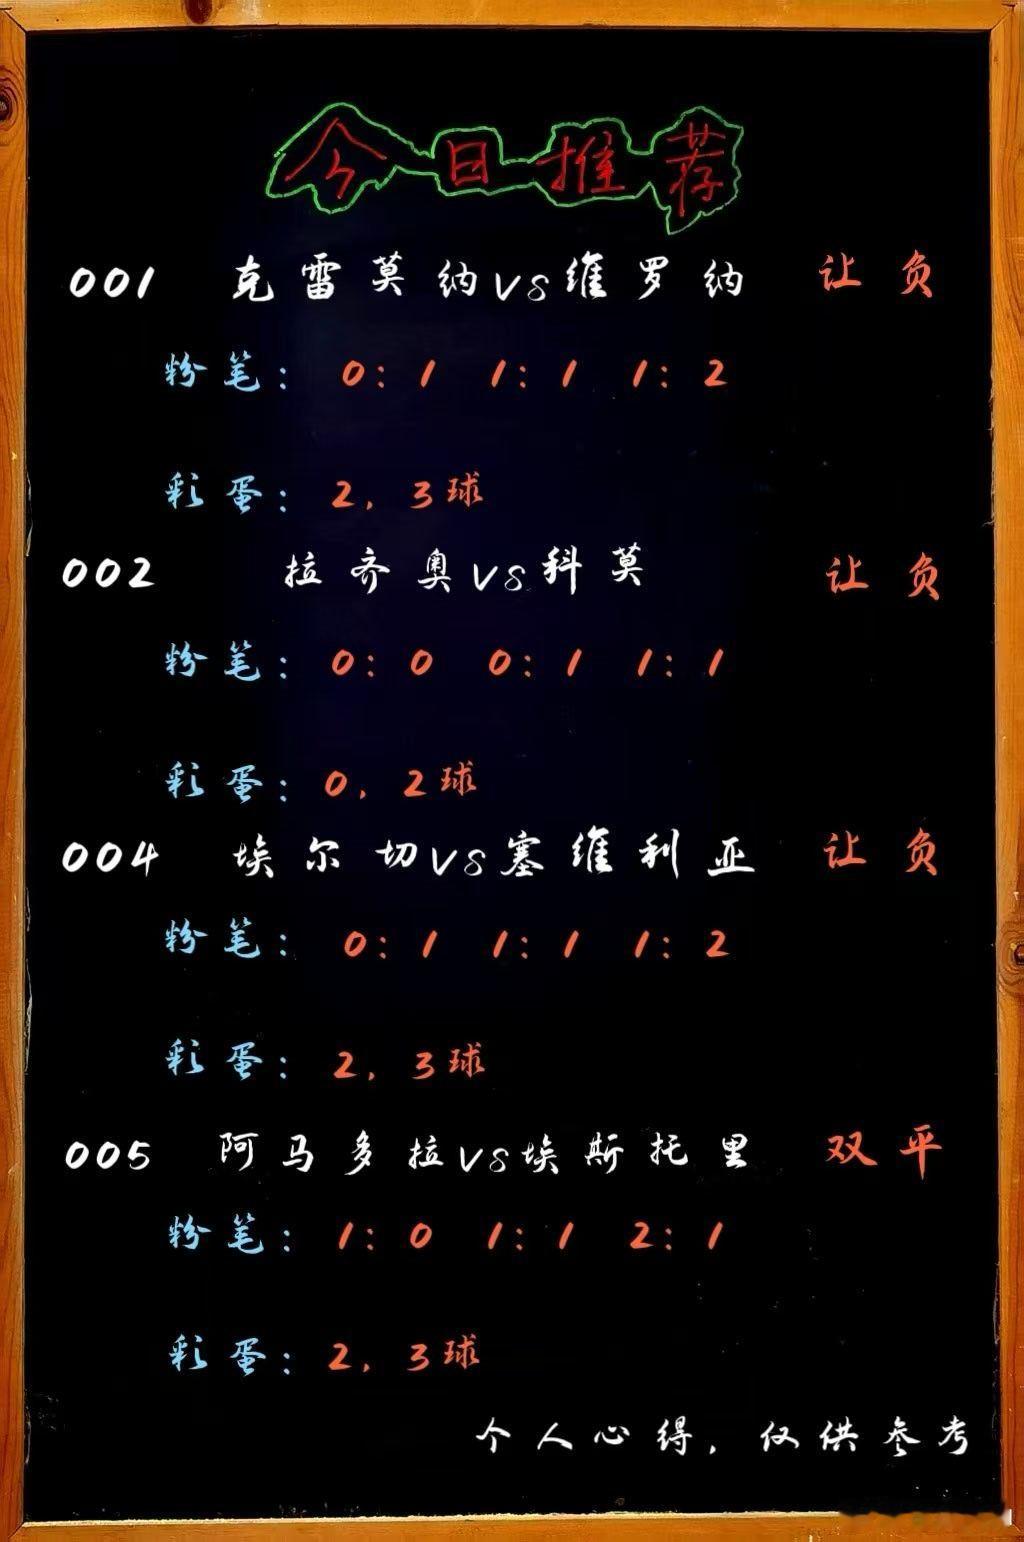 今日推荐
001 克雷莫纳VS维罗纳 让负
粉笔: 0:1 1:1 1:2
彩蛋: 2, 3球
002 拉齐奥VS科莫 让负
粉笔: 0:0 0:1 1:1
彩蛋: 0, 2球
004 埃尔切VS塞维利亚 让负
粉笔: 0:1 1:1 1:2
彩蛋: 2, 3球
005 阿马多拉VS埃斯托里 双平
粉笔: 1:0 1:1 2:1
彩蛋: 2, 3球
个人心得, 仅供参考